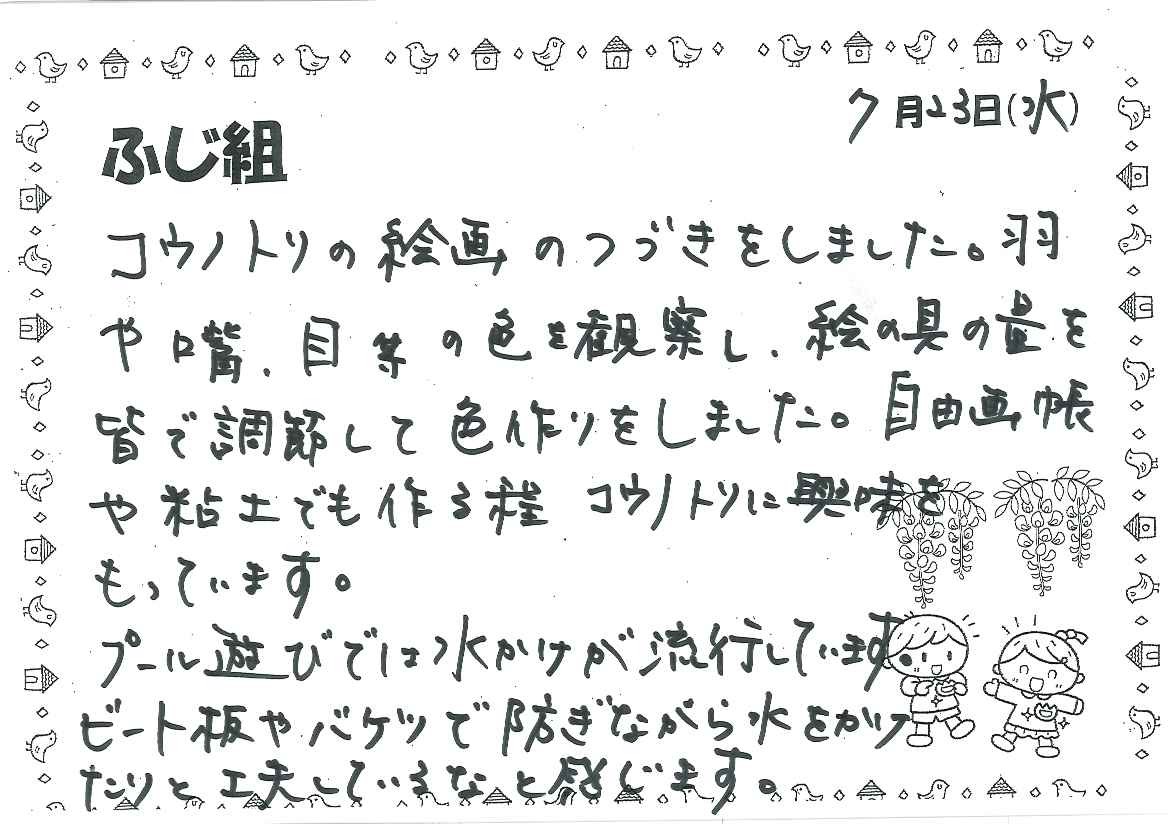 7月23日(水)
ふじ組
コウノトリの絵画のつづきをしました。羽
や口嘴、目等の色を観察し、絵の具の量を
皆で調節して色作りをしました。自由画帳
や粘土でも作る程 コウノトリに興味を
もっています。
プール遊びでは水かけが流行しています
ビート板やバケツで防ぎながら水をかけ
たりと工夫しているなと感じます。